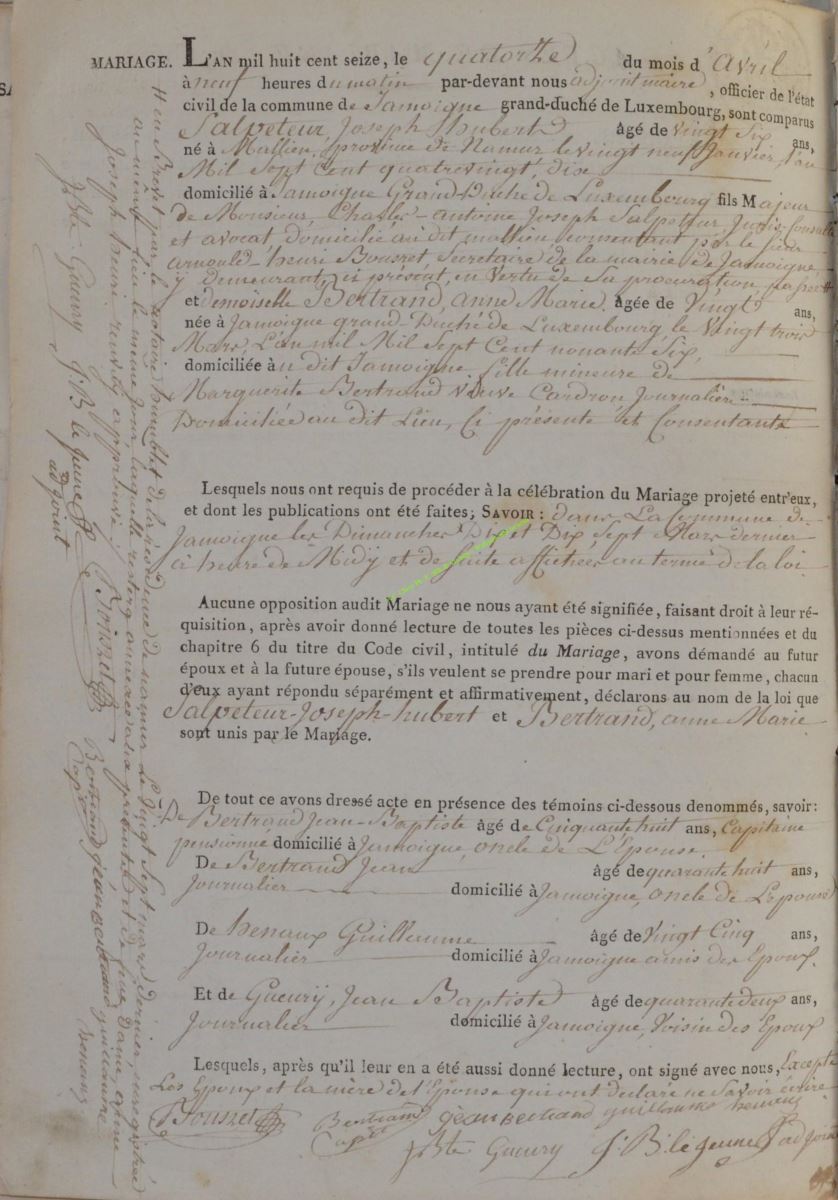 MARIAGE. L'AN mil huit cent seize, le quatorze du mois d'Avril
à neuf heures du matin par-devant nous adjoint maire, officier de l'état
civil de la commune de Jamoigne grand-duché de Luxembourg, sont comparus
Salpeteur, Joseph Hubert âgé de vingt Six ans,
né à Mallien, province de Namur le vingt neuf Janvier, l'an
Mil Sept Cent quatrevingt, dix
domicilié à Jamoigne Grand-Duché de Luxembourg fils Majeur
de Monsieur Charles-antoine Joseph Salpeteur, Juris-consulte
et avocat domicilié au dit mallien consentant par le Sieur
arnould-henri Bousret, Secretaire de la mairie de Jamoigne,
y demeurant, ci présent, en Vertu de Sa procuration, passée #
et demoiselle Bertrand, anne Marie, âgée de Vingt ans,
née à Jamoigne grand-Duché de Luxembourg, le Vingt trois
Mars, L'an mil Mil Sept Cent nonante Six,
domiciliée au dit Jamoigne, fille mineure de
Marguerite Bertrand veuve Cardron, Journalière
Domiciliée au dit Lieu, Ci présente et Consentante
Lesquels nous ont requis de procéder à la célébration du Mariage projeté entr'eux,
et dont les publications ont été faites; SAVOIR: dans La Commune de
Jamoigne les Dimanches Dix et Dix Sept Mars dernier
à heure de Midy et de Suite affichées au terme de la loi
Aucune opposition audit Mariage ne nous ayant été signifiée, faisant droit à leur ré-
quisition, après avoir donné lecture de toutes les pièces ci-dessus mentionnées et du
chapitre 6 du titre du Code civil, intitulé du Mariage, avons démandé au futur
époux et à la future épouse, s'ils veulent se prendre pour mari et pour femme, chacun
d'eux ayant répondu séparément et affirmativement, déclarons au nom de la loi que
Salpeteur-Joseph-hubert et Bertrand, anne Marie
sont unis par le Mariage.
De tout ce avons dressé acte en présence des témoins ci-dessous denommés, savoir:
De Bertrand Jean-Baptiste âgé de Cinquante huit ans, Capitaine
pensionné domicilié à Jamoigne, oncle de L'Epouse.
De Bertrand Jean âgé de quarante huit ans,
Journalier domicilié à Jamoigne, oncle de L'epouse
De henaux Guillaume âgé de Vingt Cinq ans,
Journalier domicilié à Jamoigne amis des Epoux.
Et de Gueury, Jean Baptiste âgé de quarante deux ans,
Journalier domicilié à Jamoigne, Voisin des Epoux
Lesquels, après qu'il leur en a été aussi donné lecture, ont signé avec nous, Excepté
Les Epoux et la mère de l'Epouse qui ont declaré ne Savoir écrire
Bousret Bertrand jean Bertrand guillaume henaux
Capit
J Bte Gueury J. B. le jeune adjoint
# en Brevet par le notaire de la résidence de namur Le Vingt Sept mars dernier, enregistrée
au même lieu le même jour, laquelle restera annexée
Joseph, henri, renvoy approuvé
Bousret Bertrand jean Bertrand guillaume
Capit henaux
J Bte Gueury J. B. le jeune
adjoint